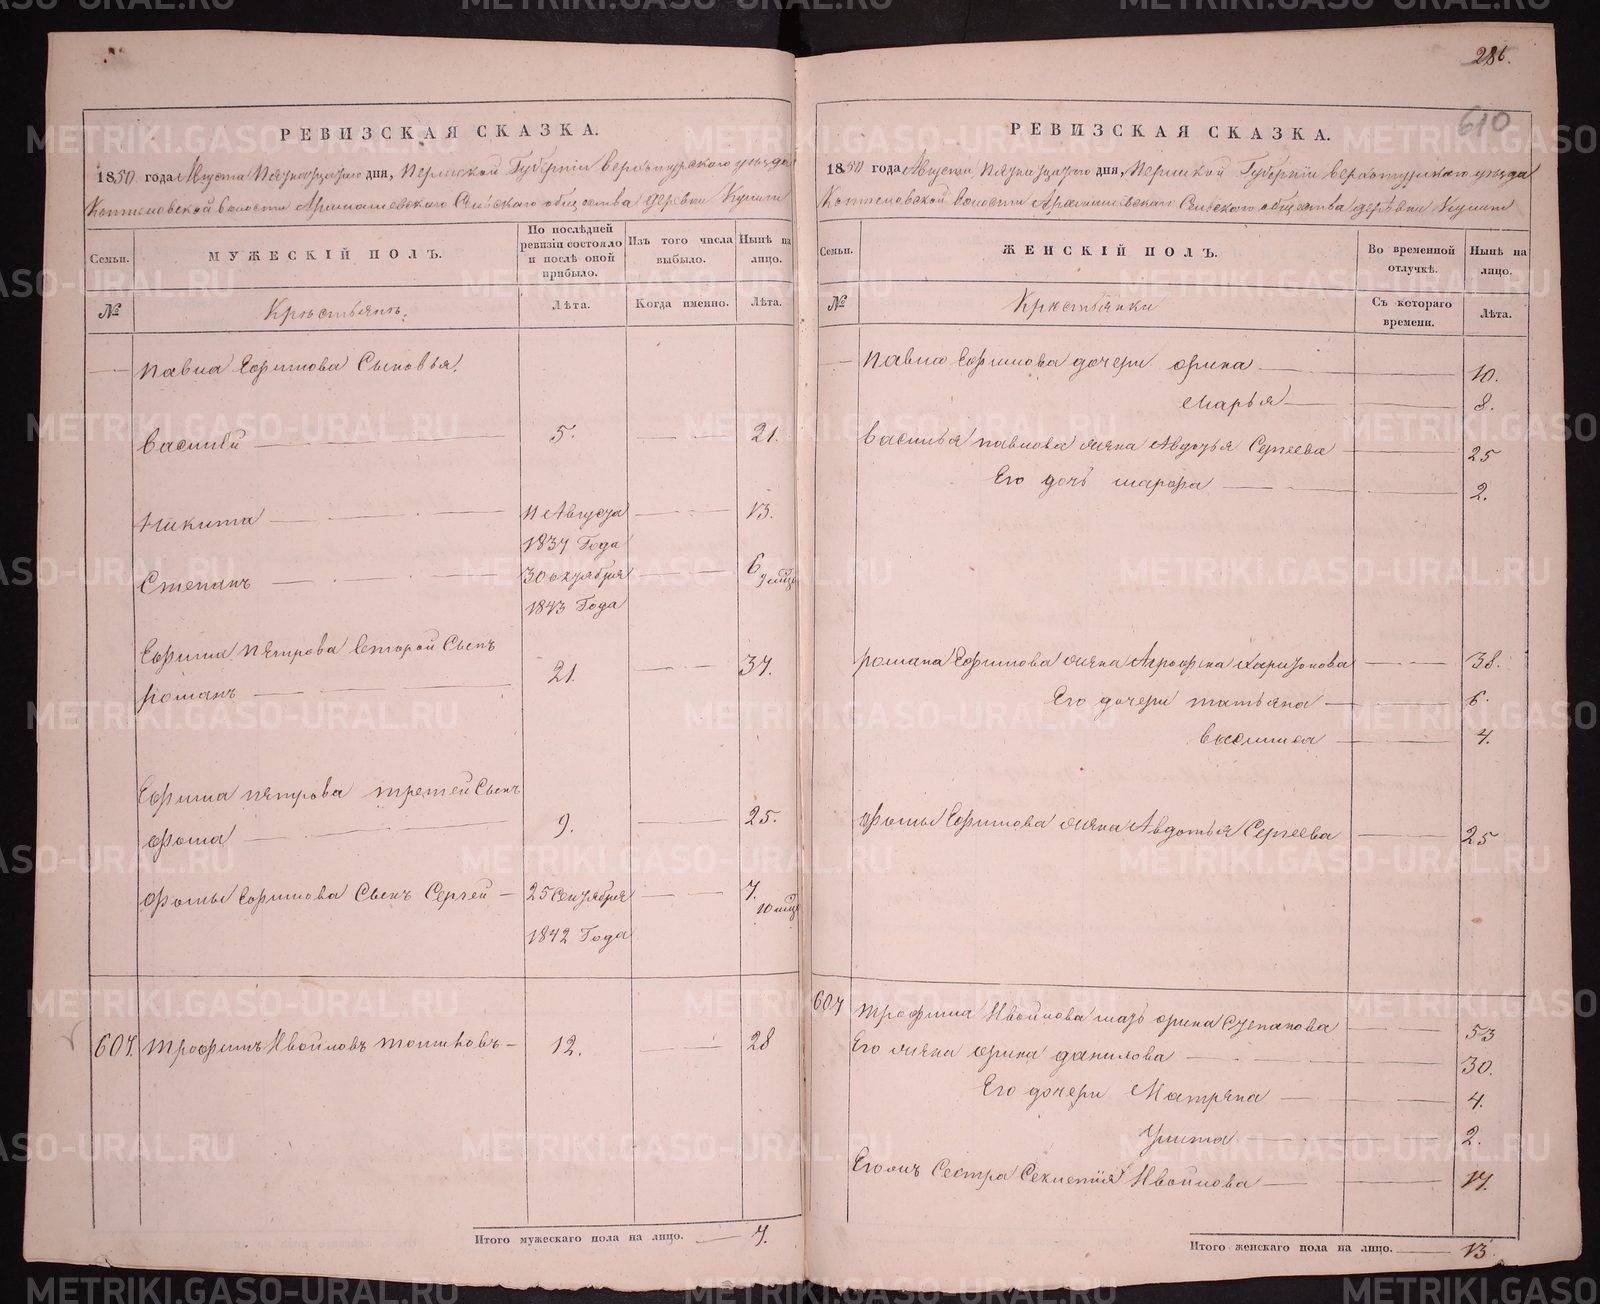 286.
610
РЕВИЗСКАЯ СКАЗКА.
1850 года Августа Пятнадцатого дня, Пермской Губернiи верхотурского уезда
Коптеловской волости Арамашевского Сельского общества деревни
Семьи.
МУЖЕСКIЙ ПОЛЪ.
По послѣдней ревизiи состояло и послѣ оной прибыло.
Изъ того числа выбыло.
Нынѣ на лицо.
№
Крестьянъ.
Лѣта.
Когда именно.
Лѣта.
Павла Ефимова Сыновья.
Василей 5. 21.
Никита 11 Августа 13.
1837 Года
Степанъ 30 октября 6 9 мцъ
1843 Года
Ефима Петрова второй Сынъ
Романъ 21. 37.
Ефима Петрова третей Сынъ
Фома 9. 25.
Фомы Ефимова Сынъ Сергей 25 Сентября 7. 10 мцъ
1842 Года
607. Трофимъ Ивойловъ 12. 28
Итого мужескаго пола на лицо. 7.
РЕВИЗСКАЯ СКАЗКА.
1850 года Августа Пятнадцатого дня, Пермской Губернiи верхотурского уезда
Коптеловской волости Арамашевского Сельского общества деревни
Семьи.
ЖЕНСКIЙ ПОЛЪ.
Во временной отлучкѣ.
Нынѣ на лицо.
№
Крестьянки
Съ котораго времени.
Лѣта.
Павла Ефимова дочери Орина 10.
Марья 8.
Василья Павлова жена Авдотья Сергеева 25
Его дочь Марфа 2.
Романа Ефимова жена Агрофена Харитонова 38.
Его дочери Татьяна 6.
4.
Фомы Ефимова жена Авдотья Сергеева 25
607 Трофима Ивойлова мать Орина Степанова 53
Его жена Орина Данилова 30.
Его дочери Матрена 4.
Улита 2.
Сестра Ивойлова 17.
Итого женскаго пола на лицо. 13
METRIKI.GASO-URAL.RU